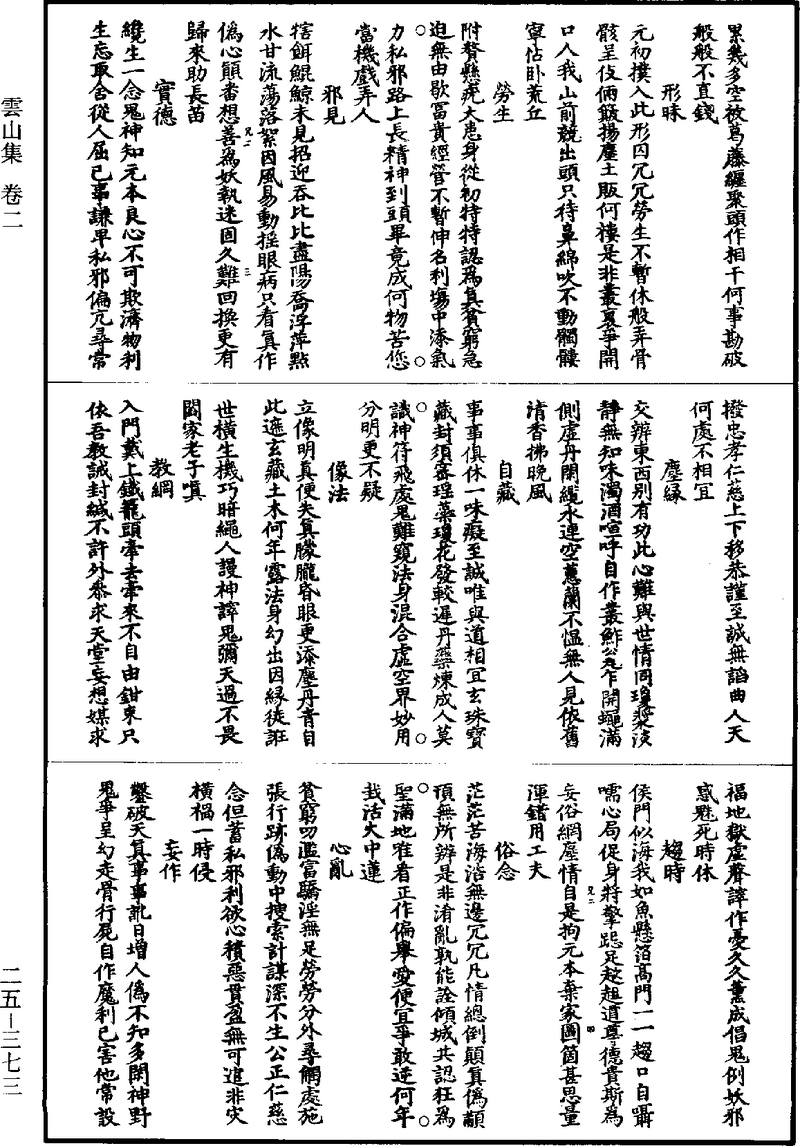 雲山集 卷二
二五－三七三
累幾多空被葛藤纏聚頭作相干何事勘破
般般不直錢
形昧
元初撲入此形囚冗冗勞生不暫休般弄骨
骸呈伎倆簸揚塵土販何樓是非叢裏爭開
口人我山前競出頭只待鼻綿吹不動髑髏
寧怗卧荒丘
勞生
附贅懸疣大患身從初特特認爲真貧窮急
迫無由歇冨貴經營不暫伸名利場中添氣
力私邪路上長精神到頭畢竟成何物苦您
當機戲弄人
邪見
犗餌鯤鯨未見招迎吞比比盡陽喬浮萍點
水甘流蕩落絮因風易動摇眼病只看真作
僞心顛番想善爲妖執迷固久難回換更有
歸來助長苗
實德
纔生一念鬼神知元本良心不可欺濟物利
生忘取舍從人屈己事謙卑私邪偏亢尋常
撥忠孝仁慈上下移恭謹至誠無謟曲人天
何處不相冝
塵緣
交辨東西别有功此心難與世情同瓊漿淡
静無知味濁酒喧呼自作叢鮓瓮乍開蠅滿
側虚丹閑纜水連空蕙蘭不愠無人見依舊
清香拂晚風
自藏
事事俱休一味癡至誠唯與道相冝玄珠寶
藏封須審瑶蘂瓊花發較遲丹藥煉成人莫
識神符飛處鬼難窺法身混合虚空界妙用
分明更不疑
像法
立像明真便失真朦朧昏眼更添塵丹青自
此遮玄藏土木何年露法身幻出因緣徒誑
世橫生機巧暗繩人謾神謗鬼彌天過不畏
閻家老子嗔
教綱
入門戴上鐵籠頭牽去牽來不自由鉗束只
依吾教誡封緘不許外叅求天堂妄想媒求
福地獄虚聲謗作憂久久薰成倡鬼倒妖邪
惑魅死時休
趨時
侯門似海我如魚懸箔高門一一趨口自囁
嚅心局促身將擎跽足趑趄道尊德貴斯爲
妄俗網塵情自是拘元本棄家圖箇甚思量
渾錯用工夫
俗念
茫茫苦海浩無邊冗冗凡情總倒顛真僞顢
頇無所辨是非淆亂孰能詮傾城共認狂爲
聖滿地惟看正作偏舉愛便宜爭敢逆何年
㘽活火中蓮
心亂
貧窮叨濫富驕淫無足勞勞分外尋觸處施
張行跡僞動中搜索計謀深不生公正仁慈
念但蓄私邪利欲心積惡貫盈無可逭非灾
橫禍一時侵
妄作
鑿破天真事事訛日增人僞不知多閑神野
鬼爭呈幻走骨行屍自作魔利己害他常設